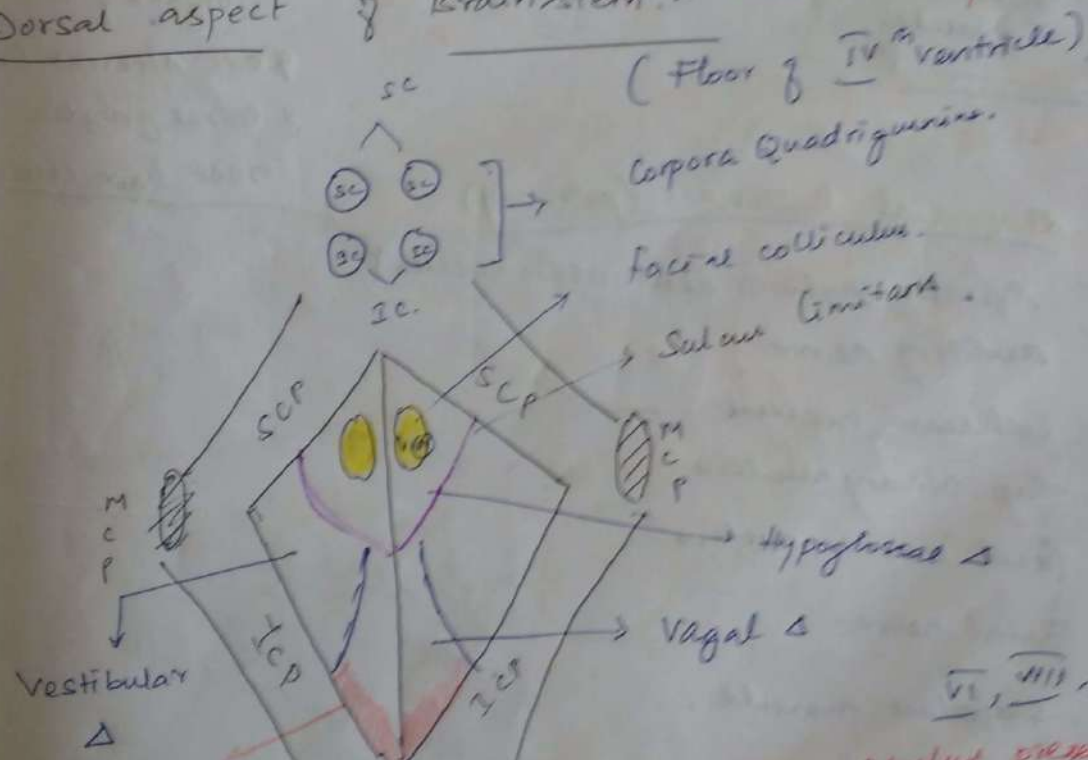 Dorsal aspect of Brainstem.
(Floor of IVth ventricle)
SC
SC SC
Corpora Quadrigemina.
IC SC
IC.
Facial colliculus.
Sulcus limitans.
SCP
SCP
MCP
MCP
Hypoglossal Δ
Vagal Δ
Vestibular
Δ
ICP
ICP
VI, VIII,